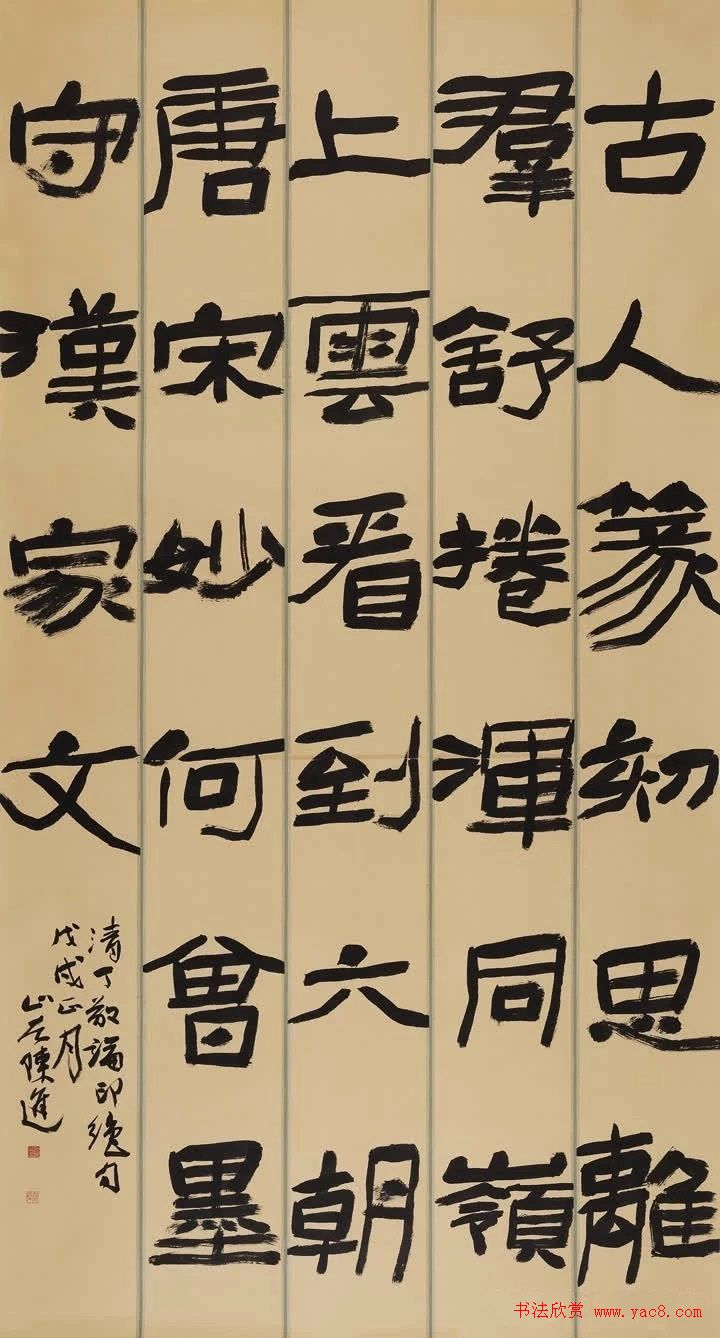 古人篆刻思離
羣舒捲渾同嶺
上雲看到六朝
唐宋妙何曾墨
守漢家文
清丁敬論印絕句
戊戌正月
山谷陳進
书法欣赏 www.yac8.com